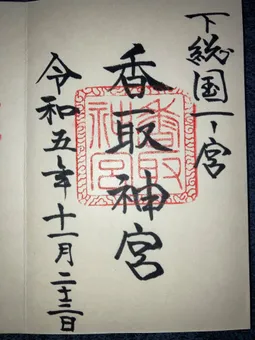 下総国一宮
香取神宮
令和五年十一月二十三日
香取神宮